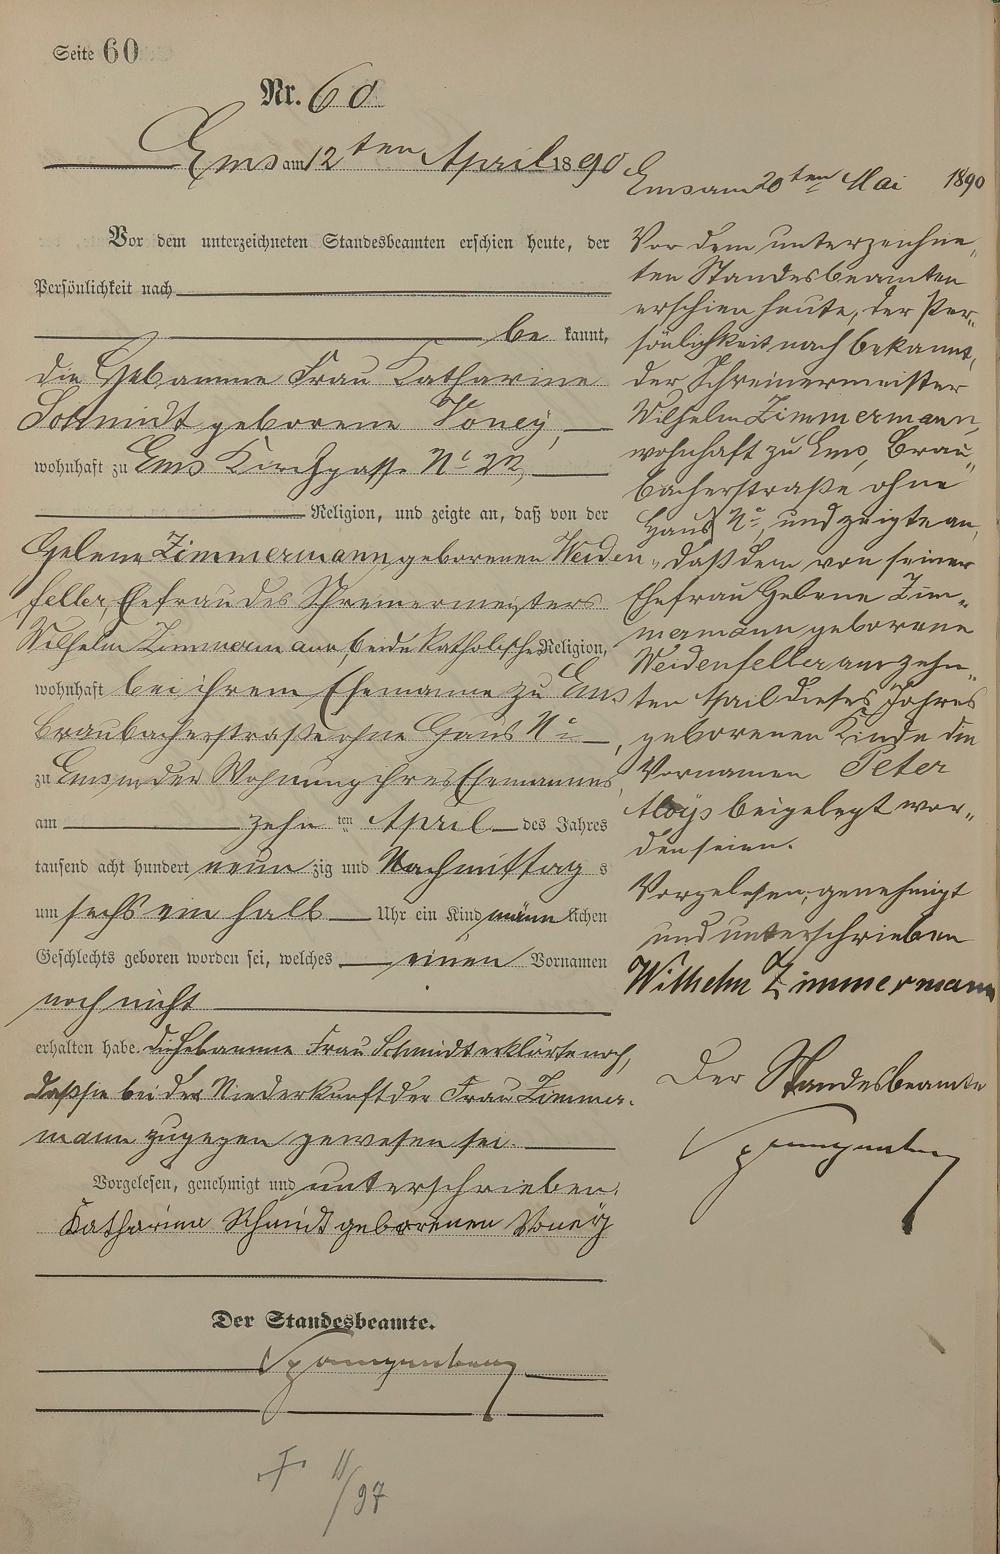 Seite 60
Nr. 60
Ems am 12ten April 1890
Vor dem unterzeichneten Standesbeamten erschien heute, der
Persönlichkeit nach
be kannt,
die Hebamme Frau Katharine
Schmidt geborene Voney,
wohnhaft zu Ems Kirchgasse No 22,
Religion, und zeigte an, daß von der
Helene Zimmermann geborenen Weiden
feller, Ehefrau des Schreinermeisters
Wilhelm Zimmermann, beide katholischer Religion,
wohnhaft bei ihrem Ehemanne zu Ems
Braubacherstraße ohne Haus No
zu Ems in der Wohnung ihres Ehemannes
am zehn ten April des Jahres
tausend acht hundert neun zig und Nachmittag s
um sechs ein halb Uhr ein Kind männ lichen
Geschlechts geboren worden sei, welches einen Vornamen
noch nicht
erhalten habe. Die Hebamme Frau Schmidt erklärte noch,
daß sie bei der Niederkunft der Frau Zimmer-
mann zugegen gewesen sei.
Vorgelesen, genehmigt und unterschrieben.
Katharina Schmidt geborenen Voney
Der Standesbeamte.
Spangenberg
† 11/97
Ems am 20ten Mai 1890
Vor dem unterzeichne-
ten Standesbeamten
erschien heute, der Per-
sönlichkeit nach bekannt,
der Schreinermeister
Wilhelm Zimmermann,
wohnhaft zu Ems, Brau-
bacherstraße ohne
Haus No, und zeigte an,
daß dem von seiner
Ehefrau Helene Zim-
mermann geborene
Weidenfeller am zehn-
ten April dieses Jahres
geborenen Kinde die
Vornamen Peter
Aloÿs beigelegt wor-
den seien.
Vorgelesen, genehmigt
und unterschrieben
Wilhelm Zimmermann
Der Standesbeamte
Spangenberg